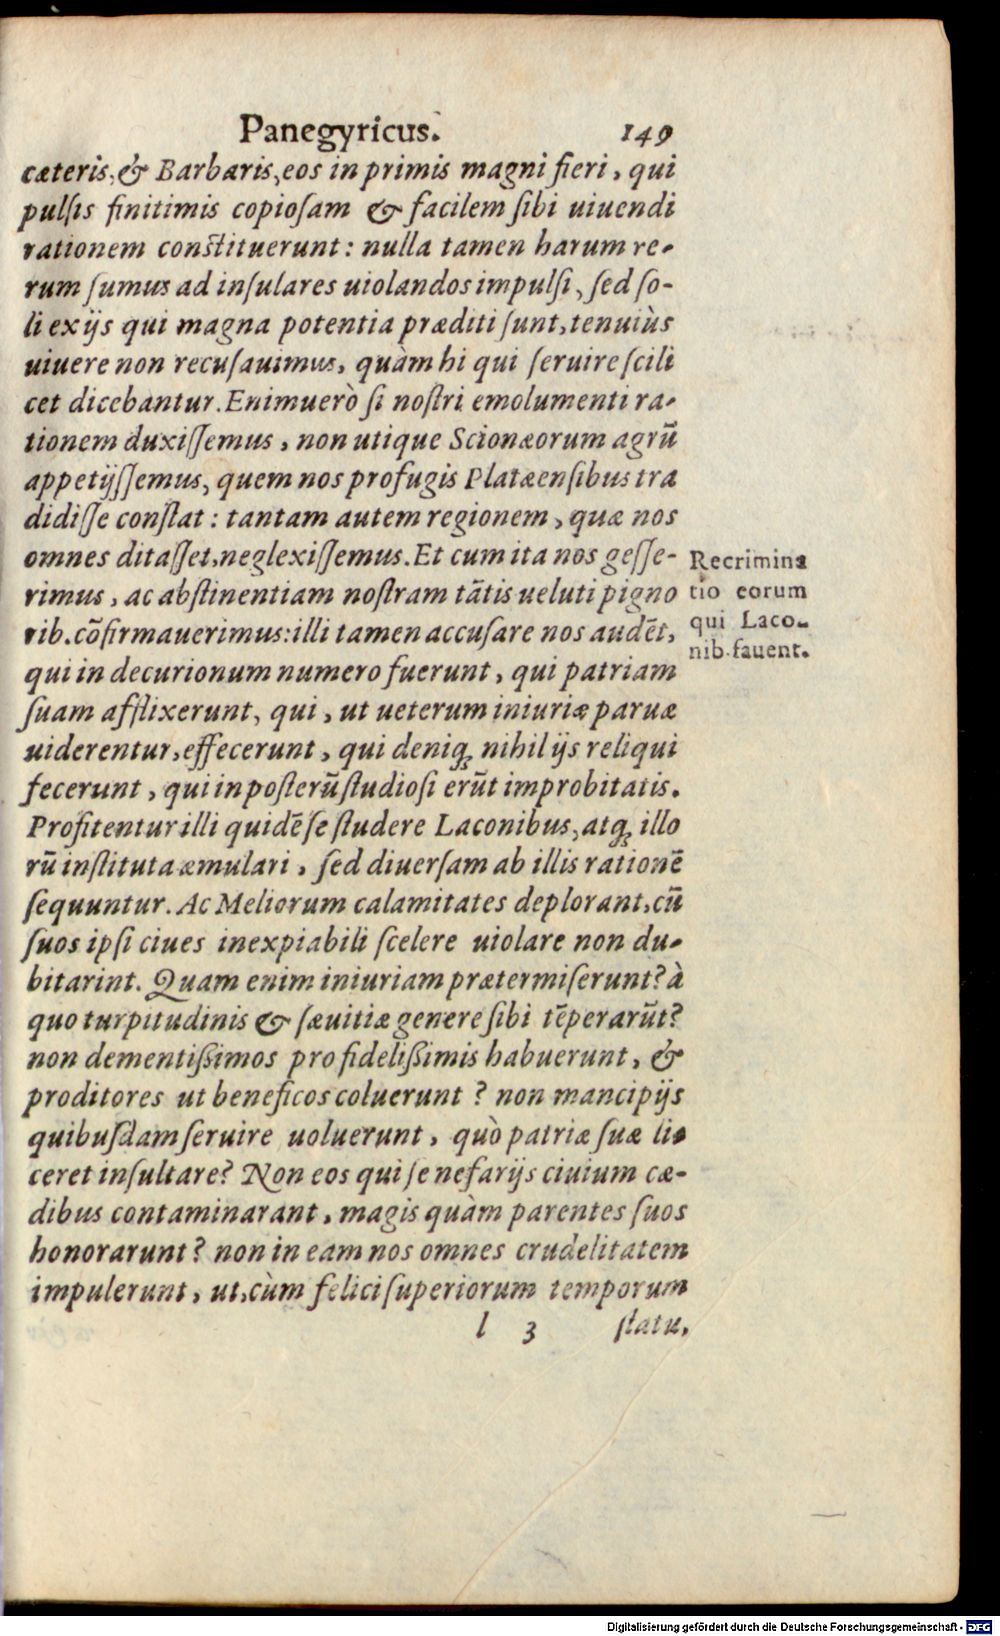 Panegyricus. 149
cæteris, & Barbaris, eos in primis magni fieri, qui
pulſis finitimis copioſam & facilem ſibi uiuendi
rationem conſtituerunt: nulla tamen harum re-
rum ſumus ad inſulares uiolandos impulſi, ſed ſo-
li ex ijs qui magna potentia præditi ſunt, tenuiùs
uiuere non recuſauimus, quàm hi qui ſeruire ſcili
cet dicebantur. Enimuerò ſi noſtri emolumenti ra-
tionem duxiſſemus, non utique Scionæorum agrū
appetijſſemus, quem nos profugis Platæenſibus tra
didiſſe conſtat: tantam autem regionem, quæ nos
omnes ditaſſet, neglexiſſemus. Et cum ita nos geſſe-
rimus, ac abſtinentiam noſtram tātis ueluti pigno
rib. cōfirmauerimus: illi tamen accuſare nos audēt,
qui in decurionum numero fuerunt, qui patriam
ſuam afflixerunt, qui, ut ueterum iniuriæ paruæ
uiderentur, effecerunt, qui deniqꝫ nihil ijs reliqui
fecerunt, qui in poſterū ſtudioſi erūt improbitatis.
Profitentur illi quidē ſe ſtudere Laconibus, atqꝫ illo
rū inſtituta æmulari, ſed diuerſam ab illis rationē
ſequuntur. Ac Meliorum calamitates deplorant, cū
ſuos ipſi ciues inexpiabili ſcelere uiolare non du-
bitarint. Quam enim iniuriam prætermiſerunt? à
quo turpitudinis & ſæuitiæ genere ſibi tēperarūt?
non dementiſſimos pro fideliſſimis habuerunt, &
proditores ut beneficos coluerunt? non mancipijs
quibuſdam ſeruire uoluerunt, quò patriæ ſuæ li-
ceret inſultare? Non eos qui ſe nefarijs ciuium cæ-
dibus contaminarant, magis quàm parentes ſuos
honorarunt? non in eam nos omnes crudelitatem
impulerunt, ut, cùm felici ſuperiorum temporum
l 3 ſtatu,
Recrimina
tio eorum
qui Laco-
nib. fauent.
Digitalisierung gefördert durch die Deutsche Forschungsgemeinschaft - DFG